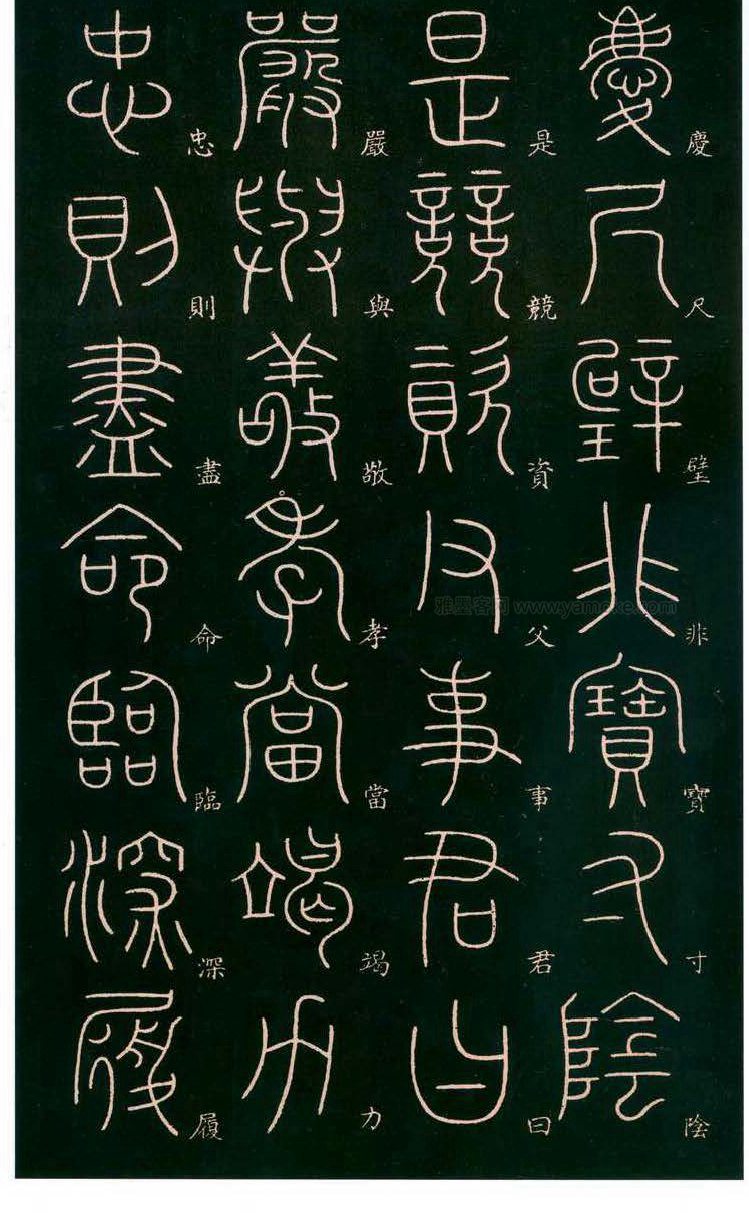 慶尺璧非寶寸陰
是競資父事君曰
嚴與敬孝當竭力
忠則盡命臨深履
雅墨客网 www.yamoke.com